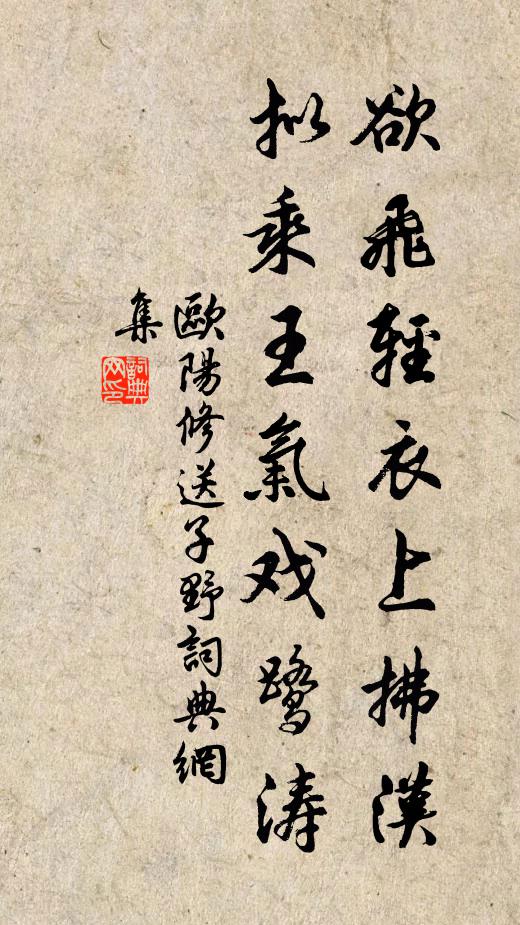 欲飛輕衣上拂漢
拟乘王氣戏鷺涛
歐陽修送子野詞典網
集
詞典网印